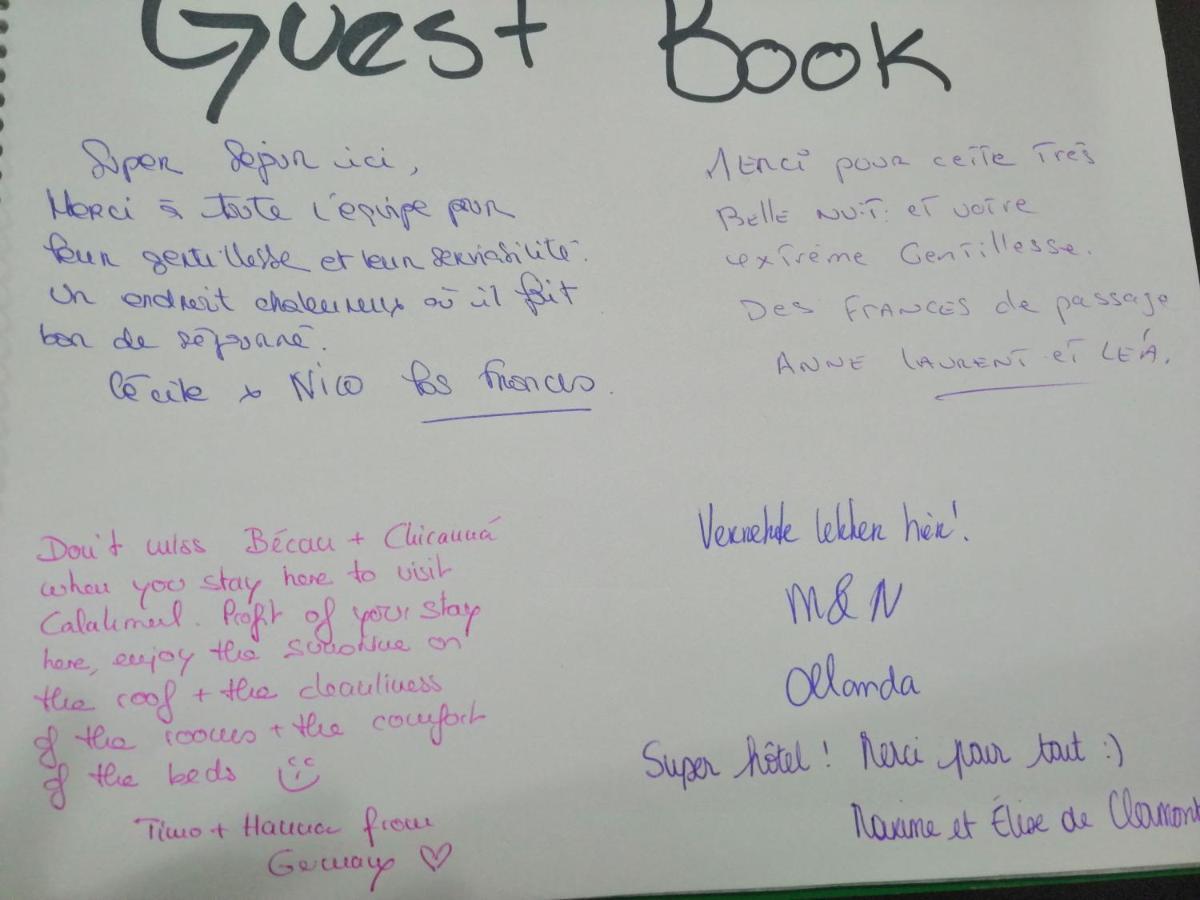 Guest Book
Super Séjour ici,
Merci à toute l'équipe pour
leur gentillesse et leur serviabilité.
Un endroit chaleureux où il fait
bon de séjourné.
Cécile & Nico los Frances.
Merci pour cette très
Belle nuit et votre
extrême Gentillesse.
Des Frances de passage
Anne Laurent et Léa.
Don't miss Bécan + Chicanná
when you stay here to visit
Calakmul. Profit of your stay
here, enjoy the sunshine on
the roof + the cleanliness
of the rooms + the comfort
of the beds
Timo + Hanna from
Germany ♡
lekker hier!
M&N
Ollanda
Super hôtel! Merci pour tout :)
Maxime et Élise de Clermont